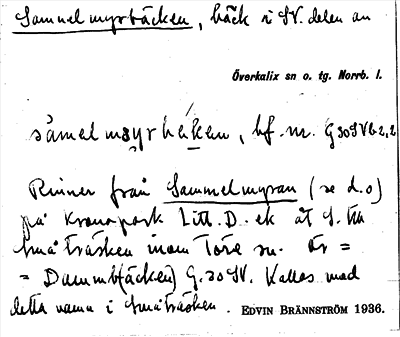 Sammelmyrbäcken, bäck i SV. delen av
Överkalix sn o. tg. Norrb. l.
sámelmyrbekən, bf. nr. G 30 SV b 2,2
Rinner från Sammelmyran (se d.o)
på Kronopark Litt. D. ek åt S. till
Småträsken inom Töre sn. Är =
= Dammb(äcken) G. 30 SV. Kallas med
detta namn i Småträsken. EDVIN BRÄNNSTRÖM 1936.